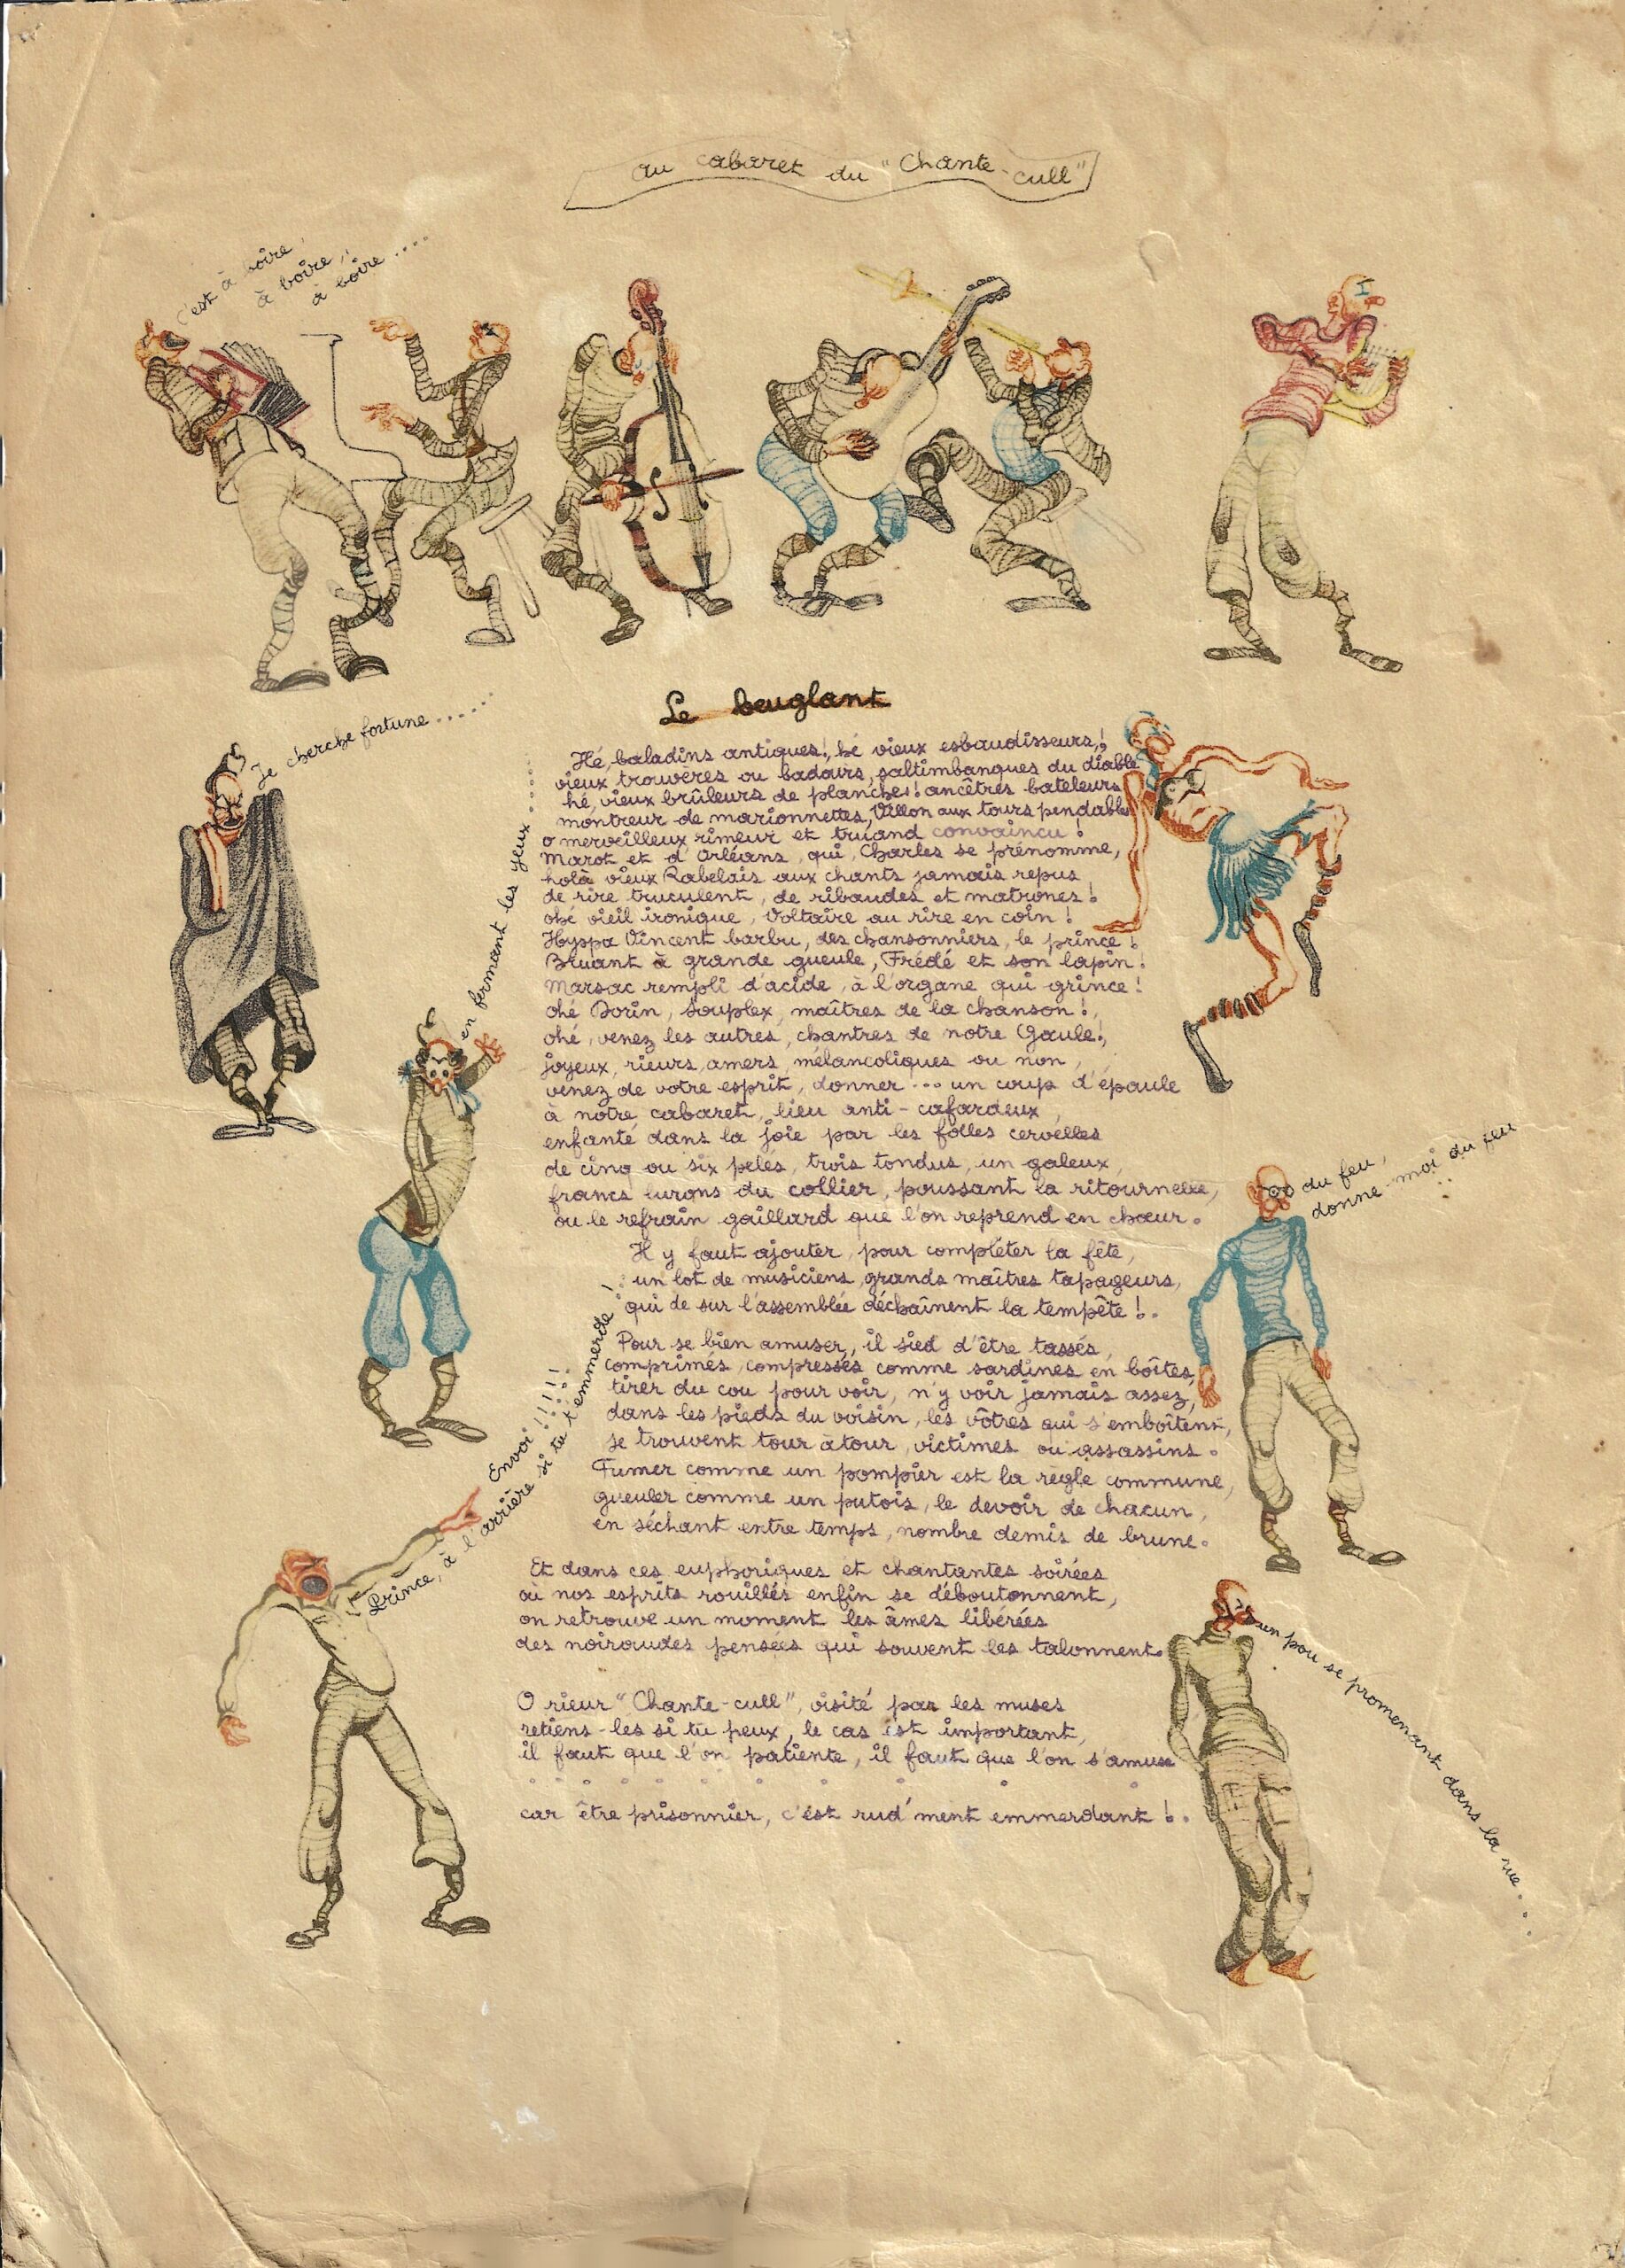 au cabaret du "Chante-cull"
c'est à boire,
à boire,
à boire....
Je cherche fortune.....
en fermant les yeux.....
Le beuglant
Hé, baladins antiques! hé vieux esbaudisseurs!
vieux trouvères ou badours, saltimbanques du diable
hé, vieux brûleurs de planches! ancêtres bateleurs
montreur de marionnettes, Villon aux tours pendables
o merveilleux rimeur et truand convaincu!
Marot et d'Orléans, qui, Charles se prénomme,
holà vieux Rabelais aux chants jamais repus
de rire truculent, de ribaudes et matrones!
ohé vieil ironique, Voltaire au rire en coin!
Hyspa Vincent barbu, des chansonniers, le prince!
Bruant à grande gueule, Frédé et son lapin!
Marsac rempli d'acide, à l'organe qui grince!
ohé Dorin, Souplex, maîtres de la chanson!,
ohé, venez les autres, chantres de notre Gaule!,
joyeux, rieurs, amers, mélancoliques ou non,
venez de votre esprit, donner... un coup d'épaule
à notre cabaret, lieu anti-cafardeux,
enfanté dans la joie par les folles cervelles
de cinq ou six pelés, trois tondus, un galeux,
francs lurons du collier, poussant la ritournelle,
ou le refrain gaillard que l'on reprend en chœur.
Il y faut ajouter, pour compléter la fête,
un lot de musiciens, grands maîtres tapageurs,
qui de sur l'assemblée déchaînent la tempête!.
Pour se bien amuser, il sied d'être tassés,
comprimés, compressés comme sardines en boîtes,
tirer du cou pour voir, n'y voir jamais assez,
dans les pieds du voisin, les vôtres qui s'emboîtent,
se trouvent tour à tour, victimes ou assassins.
Fumer comme un pompier est la règle commune,
gueuler comme un putois, le devoir de chacun,
en séchant entre temps, nombre demis de brune.
Et dans ces euphoriques et chantantes soirées
où nos esprits rouillés enfin se déboutonnent,
on retrouve un moment les âmes libérées
des noiraudes pensées qui souvent les talonnent.
O rieur "Chante-cull", visité par les muses
retiens-les si tu peux, le cas est important,
il faut que l'on patiente, il faut que l'on s'amuse
. . . . . . . . . . .
car être prisonnier, c'est rud'ment emmerdant!.
Envoi!!!!
Prince, à l'arrière si tu t'emmerde!
du feu,
donne-moi du feu
un pou se promenant dans la rue...